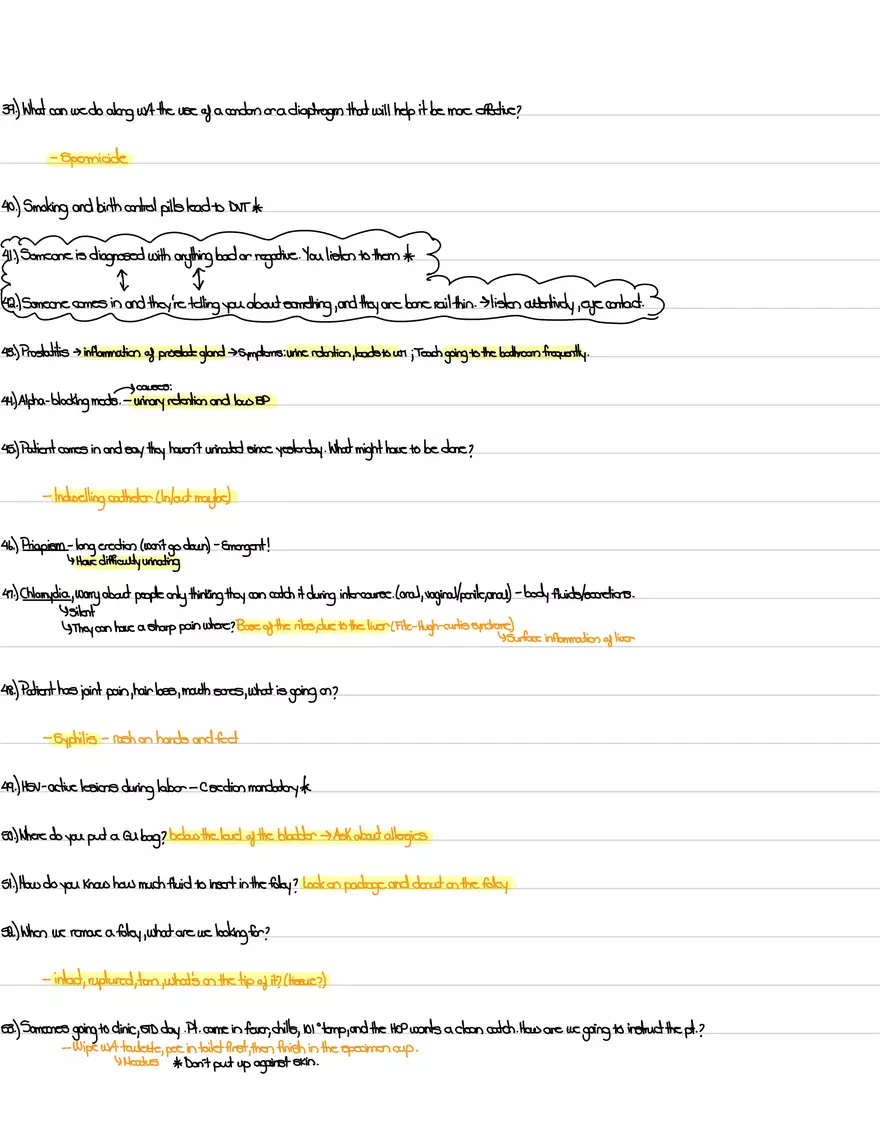 39.) What can we do along w/t the use of a condom or a diaphragm that will help it be more effective?
- Spermicide
40.) Smoking and birth control pills lead to DVT *
41.) Someone is diagnosed with anything bad or negative. You listen to them *
42.) Someone comes in and they're telling you about something, and they are bone rail thin. → listen attentively, eye contact.
43.) Prostatitis → inflammation of prostate gland → Symptoms: urine retention, leads to UTI ; Teach going to the bathroom frequently.
causes:
44.) Alpha-blocking meds. - urinary retention and low BP
45.) Patient comes in and say they haven't urinated since yesterday. What might have to be done?
- Indwelling catheter (In/out maybe)
46.) Priapism - long erection (won't go down) - Emergent!
↳ Have difficulty urinating
47.) Chlamydia, worry about people only thinking they can catch it during intercourse. (oral, vaginal/penile, anal) - body fluids/secretions.
↳ Silent
↳ They can have a sharp pain where? Base of the ribs, due to the liver (Fitz-Hugh-curtis syndrome)
↳ Surface inflammation of liver
48.) Patient has joint pain, hair loss, mouth sores, what is going on?
- Syphilis - rash on hands and feet
49.) HSV - active lesions during labor - C section mandatory *
50.) Where do you put a GU bag? below the level of the bladder → Ask about allergies
51.) How do you know how much fluid to insert in the foley? Look on package and donut on the foley
52.) When we remove a foley, what are we looking for?
- intact, ruptured, torn, what's on the tip of it? (tissue?)
53.) Someones going to clinic, STD day. Pt. came in fever, chills, 101° temp, and the HCP wants a clean catch. How are we going to instruct the pt.?
- Wipe w/t towlette, pee in toilet first, then finish in the specimen cup.
↳ Meatus * Don't put up against skin.